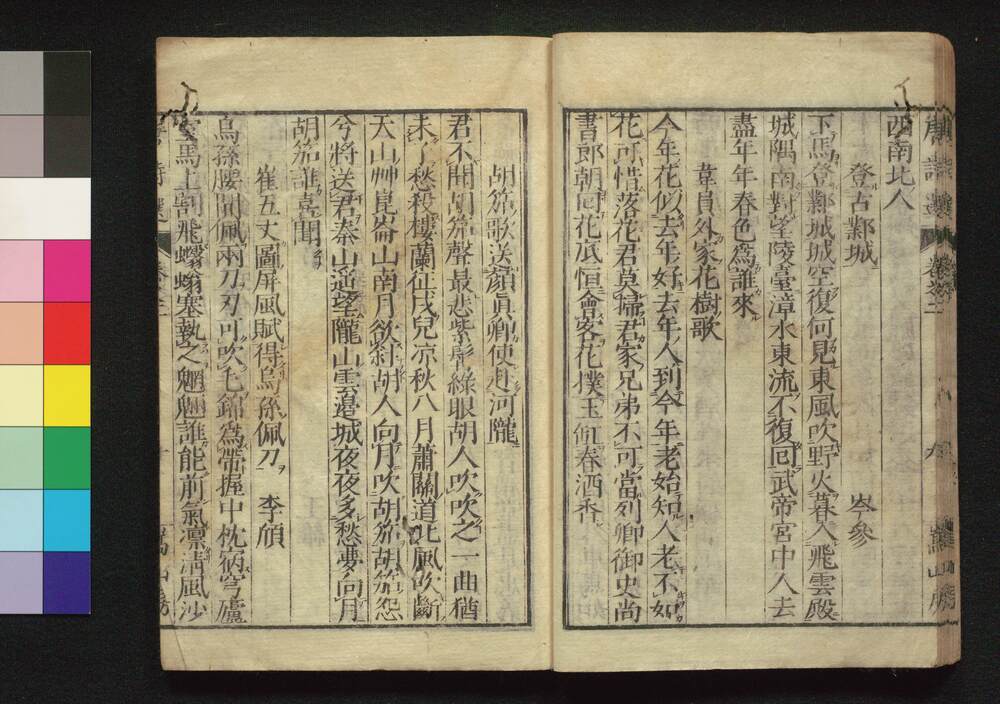 西南北人
登古鄴城 岑參
下馬登鄴城城空復何見東風吹野火暮入飛雲殿
城隅南對望陵臺漳水東流不復囘武帝宮中人去
盡年年春色爲誰來
韋員外家花樹歌
今年花似去年好去年人到今年老始知人老不如
花可惜落花君莫掃君家兄弟不可當列卿御史尚
書郎朝囘花底恒會客花撲玉缸春酒香
胡笳歌送顏眞卿使赴河隴
君不聞胡笳聲最悲紫髯綠眼胡人吹吹之一曲猶
未了愁殺樓蘭征戍兒凉秋八月蕭關道北風吹斷
天山艸崑崙山南月欲斜胡人向月吹胡笳胡笳怨
兮將送君秦山遙望隴山雲邉城夜夜多愁夢向月
胡笳誰喜聞
崔五丈圖屏風賦得烏孫佩刀 李頎
烏孫腰間佩兩刀刃可吹毛錦爲帶握中枕宿穹廬
室馬上割飛蠮螉塞執之魍魎誰能前氣凛淸風沙